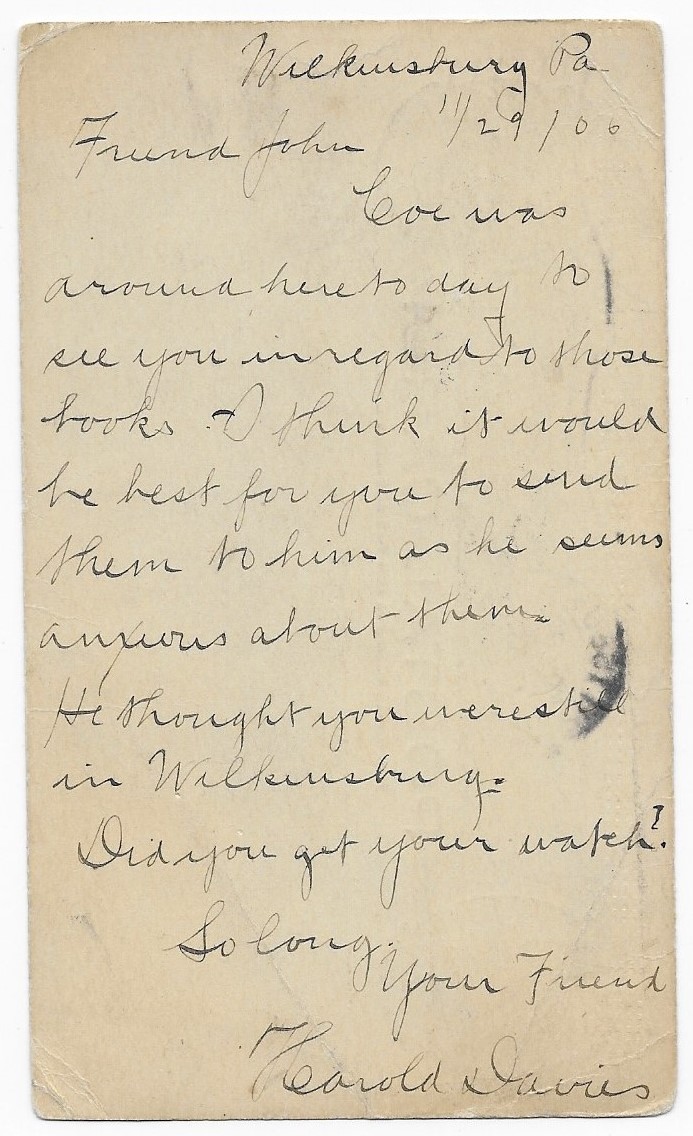 Wilkinsburg Pa
11/29/06
Friend John
Coe was
around here to day to
see you in regard to those
books. I think it would
be best for you to send
them to him as he seems
anxious about them.
He thought you were still
in Wilkinsburg.
Did you get your watch?
So long.
Your Friend
Harold Davies